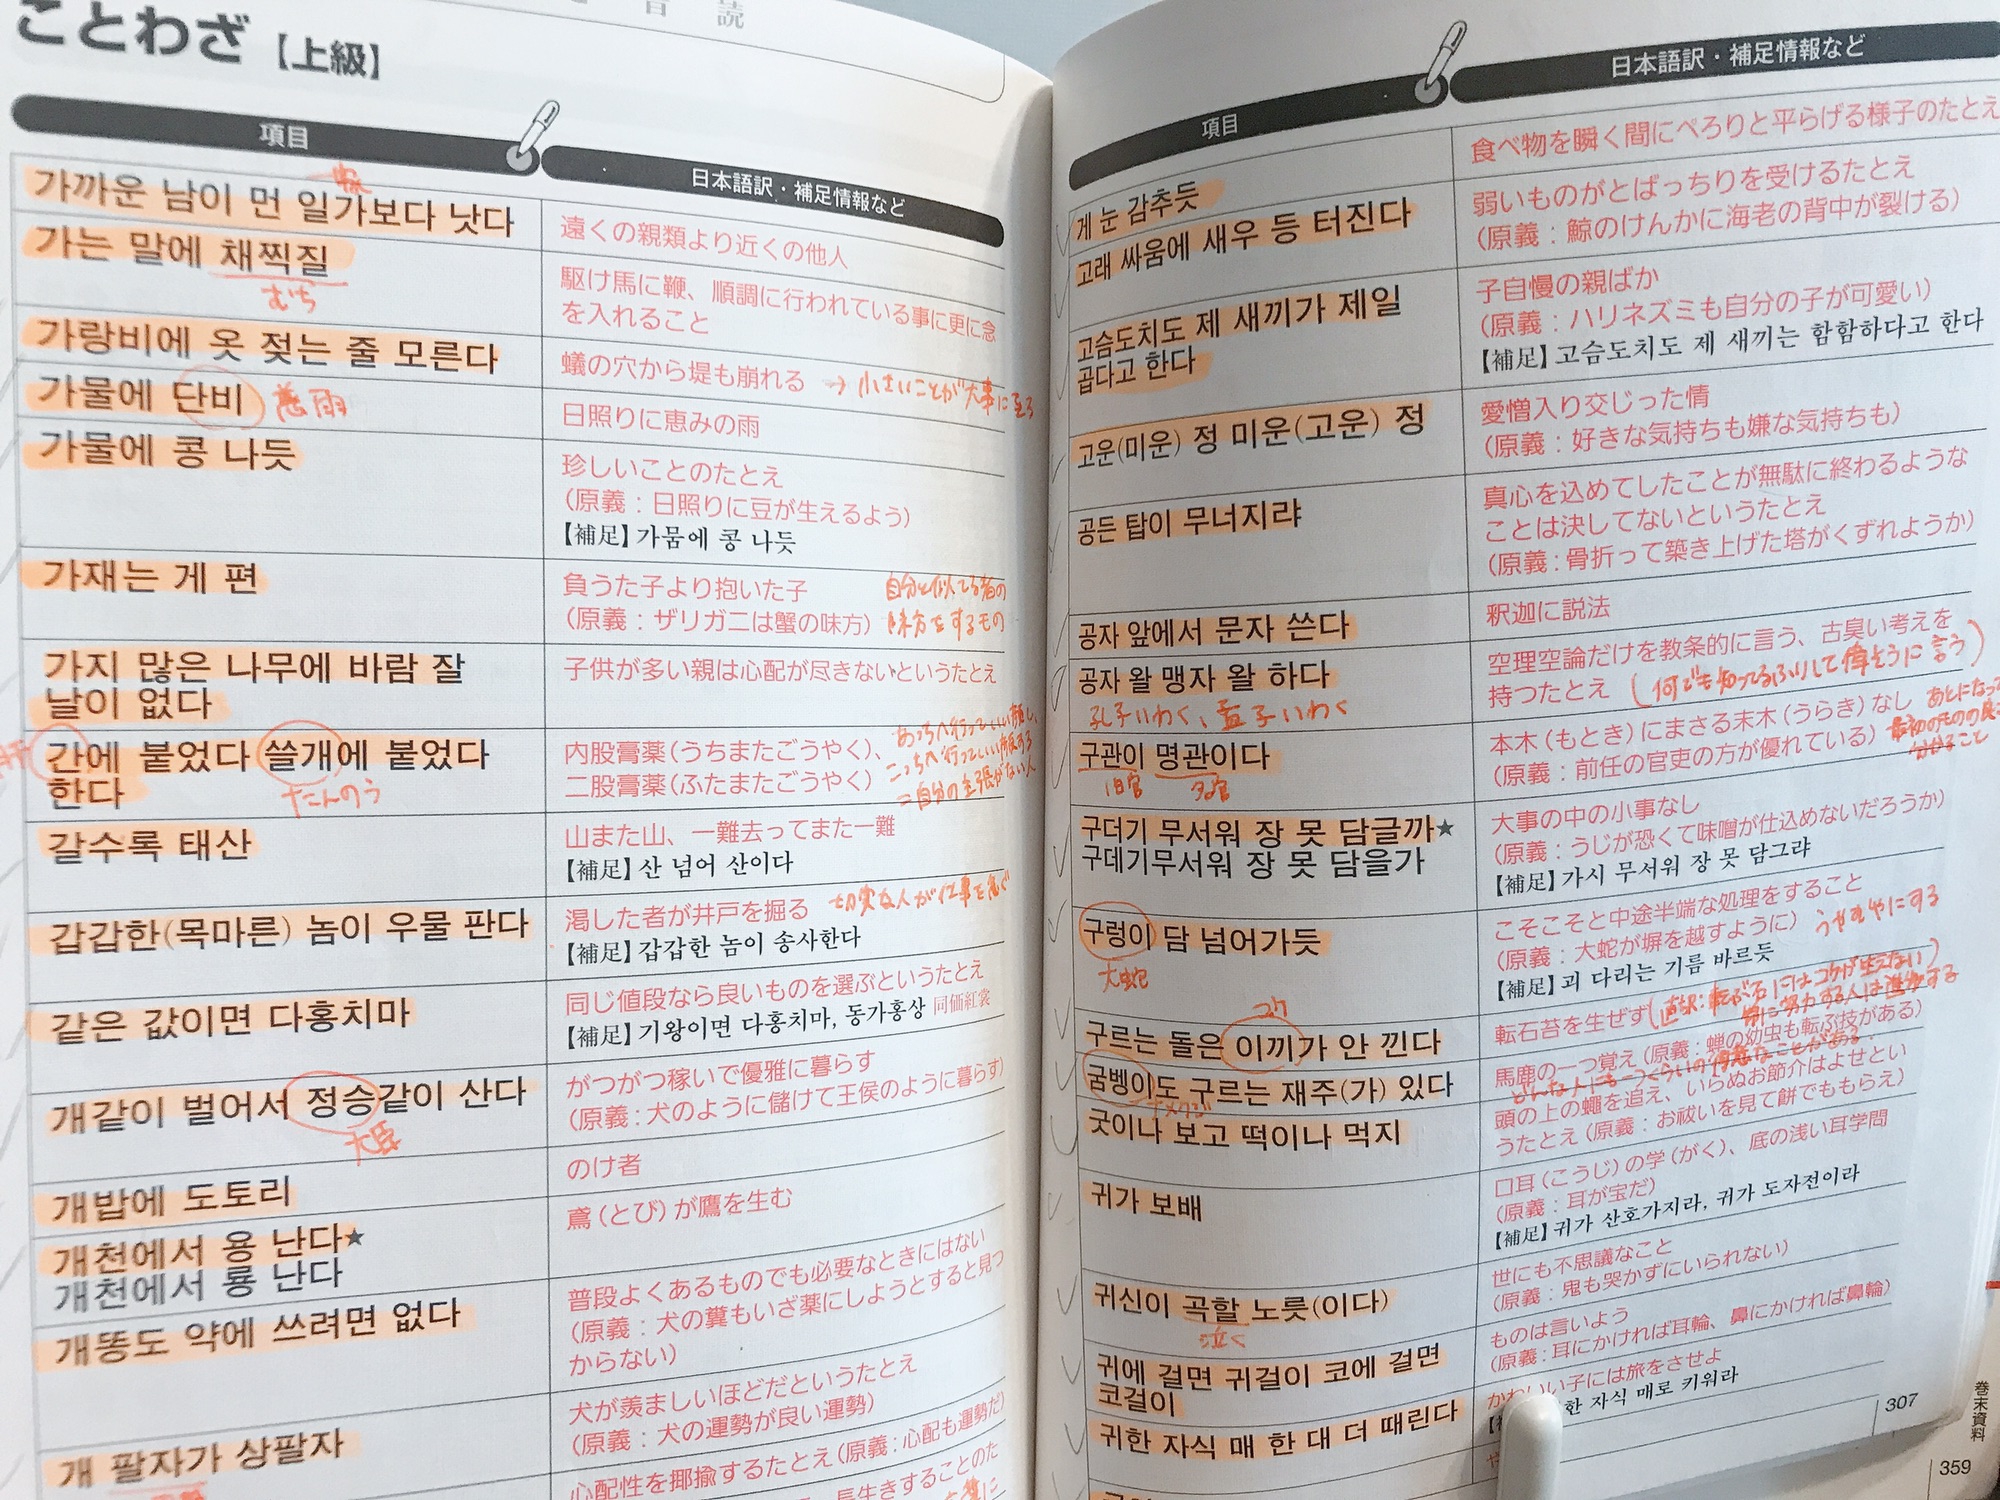 音読
ことわざ【上級】
項目
日本語訳・補足情報など
가까운 남이 먼 일가보다 낫다
家
遠くの親類より近くの他人
가는 말에 채찍질
むち
駆け馬に鞭、順調に行われている事に更に念
を入れること
가랑비에 옷 젖는 줄 모른다
蟻の穴から堤も崩れる
→小さいことが大事に至る
가물에 단비
慈雨
日照りに恵みの雨
가물에 콩 나듯
珍しいことのたとえ
（原義：日照りに豆が生えるよう）
【補足】가뭄에 콩 나듯
가재는 게 편
負うた子より抱いた子
（原義：ザリガニは蟹の味方）
自分と似てる者の
味方をするもの
가지 많은 나무에 바람 잘
날이 없다
子供が多い親は心配が尽きないというたとえ
간에 붙었다 쓸개에 붙었다
한다
肝
たんのう
内股膏薬（うちまたごうやく）、
二股膏薬（ふたまたごうやく）
あっちへ行っていい顔し、
こっちへ行っていい顔する
＝自分の主張がない人
갈수록 태산
山また山、一難去ってまた一難
【補足】산 넘어 산이다
갑갑한(목마른) 놈이 우물 판다
渇した者が井戸を掘る
切実な人が仕事を急ぐ
【補足】갑갑한 놈이 송사한다
같은 값이면 다홍치마
同じ値段なら良いものを選ぶというたとえ
【補足】기왕이면 다홍치마, 동가홍상 同価紅裳
개같이 벌어서 정승같이 산다
大臣
がつがつ稼いで優雅に暮らす
（原義：犬のように儲けて王侯のように暮らす）
개밥에 도토리
のけ者
개천에서 용 난다★
개천에서 룡 난다
鳶（とび）が鷹を生む
개똥도 약에 쓰려면 없다
普段よくあるものでも必要なときにはない
（原義：犬の糞もいざ薬にしようとすると見つ
からない）
개 팔자가 상팔자
犬が羨ましいほどだというたとえ
（原義：犬の運勢が良い運勢）
心配性を揶揄するたとえ（原義：心配も運勢だ）
長生きすることのた
項目
日本語訳・補足情報など
게 눈 감추듯
食べ物を瞬く間にぺろりと平らげる様子のたとえ
고래 싸움에 새우 등 터진다
弱いものがとばっちりを受けるたとえ
（原義：鯨のけんかに海老の背中が裂ける）
고슴도치도 제 새끼가 제일
곱다고 한다
子自慢の親ばか
（原義：ハリネズミも自分の子が可愛い）
【補足】고슴도치도 제 새끼는 함함하다고 한다
고운(미운) 정 미운(고운) 정
愛憎入り交じった情
（原義：好きな気持ちも嫌な気持ちも）
공든 탑이 무너지랴
真心を込めてしたことが無駄に終わるような
ことは決してないというたとえ
（原義：骨折って築き上げた塔がくずれようか）
공자 앞에서 문자 쓴다
釈迦に説法
공자 왈 맹자 왈 하다
孔子いわく、孟子いわく
空理空論だけを教条的に言う、古臭い考えを
持つたとえ
（何でも知ってるふりして偉そうに言う）
구관이 명관이다
旧官
名官
本木（もとき）にまさる末木（うらき）なし
（原義：前任の官吏の方が優れている）
あとになって
最初のものの良さ
分かること
구더기 무서워 장 못 담글까★
구데기무서워 장 못 담을가
大事の中の小事なし
（原義：うじが恐くて味噌が仕込めないだろうか）
【補足】가시 무서워 장 못 담그랴
구렁이 담 넘어가듯
大蛇
こそこそと中途半端な処理をすること
（原義：大蛇が塀を越すように）
うやむやにする
【補足】괴 다리는 기름 바르듯
구르는 돌은 이끼가 안 낀다
コケ
転石苔を生ぜず
（直訳：転がる石にはコケが生えない）
常に努力する人は進歩する
굼벵이도 구르는 재주(가) 있다
馬鹿の一つ覚え（原義：蝉の幼虫も転ぶ技がある）
どんな人にも一つくらいの得意なことがある
굿이나 보고 떡이나 먹지
頭の上の蠅を追え、いらぬお節介はよせとい
うたとえ（原義：お祓いを見て餅でももらえ）
귀가 보배
口耳（こうじ）の学（がく）、底の浅い耳学問
（原義：耳が宝だ）
【補足】귀가 산호가지라, 귀가 도자전이라
귀신이 곡할 노릇(이다)
泣く
世にも不思議なこと
（原義：鬼も哭かずにいられない）
귀에 걸면 귀걸이 코에 걸면
코걸이
ものは言いよう
（原義：耳にかければ耳輪、鼻にかければ鼻輪）
귀한 자식 매 한 대 더 때린다
かわいい子には旅をさせよ
한 자식 매로 키워라
307
巻末資料
359